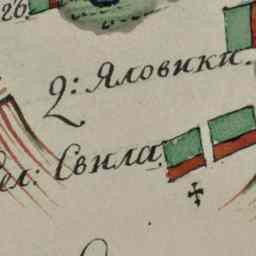 26.
д: Яловики.
ел: Свила.